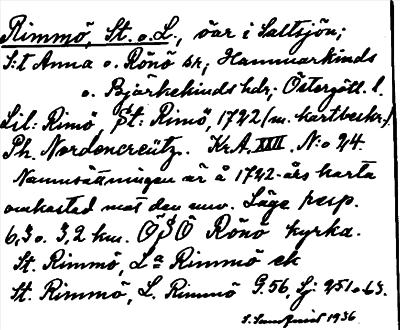 Rimmö, St. o. L., öar i Saltsjön;
S:t Anna o. Rönö sr; Hammarkinds
o. Björkekinds hdr; Östergötl. l.
Lil: Rimö, St: Rimö, 1722 (m. kartbeskr.)
Ph. Nordencreütz. Kr.A. XXII. N:o 24.
Namnsättningen är å 1722-års karta
omkastad mot den nuv. Läge resp.
6,3 o. 3,2 km. ÖSÖ Rönö kyrka.
St. Rimmö, La Rimmö ek
St. Rimmö, L. Rimmö G.56, Lj 251 o 63.
1936